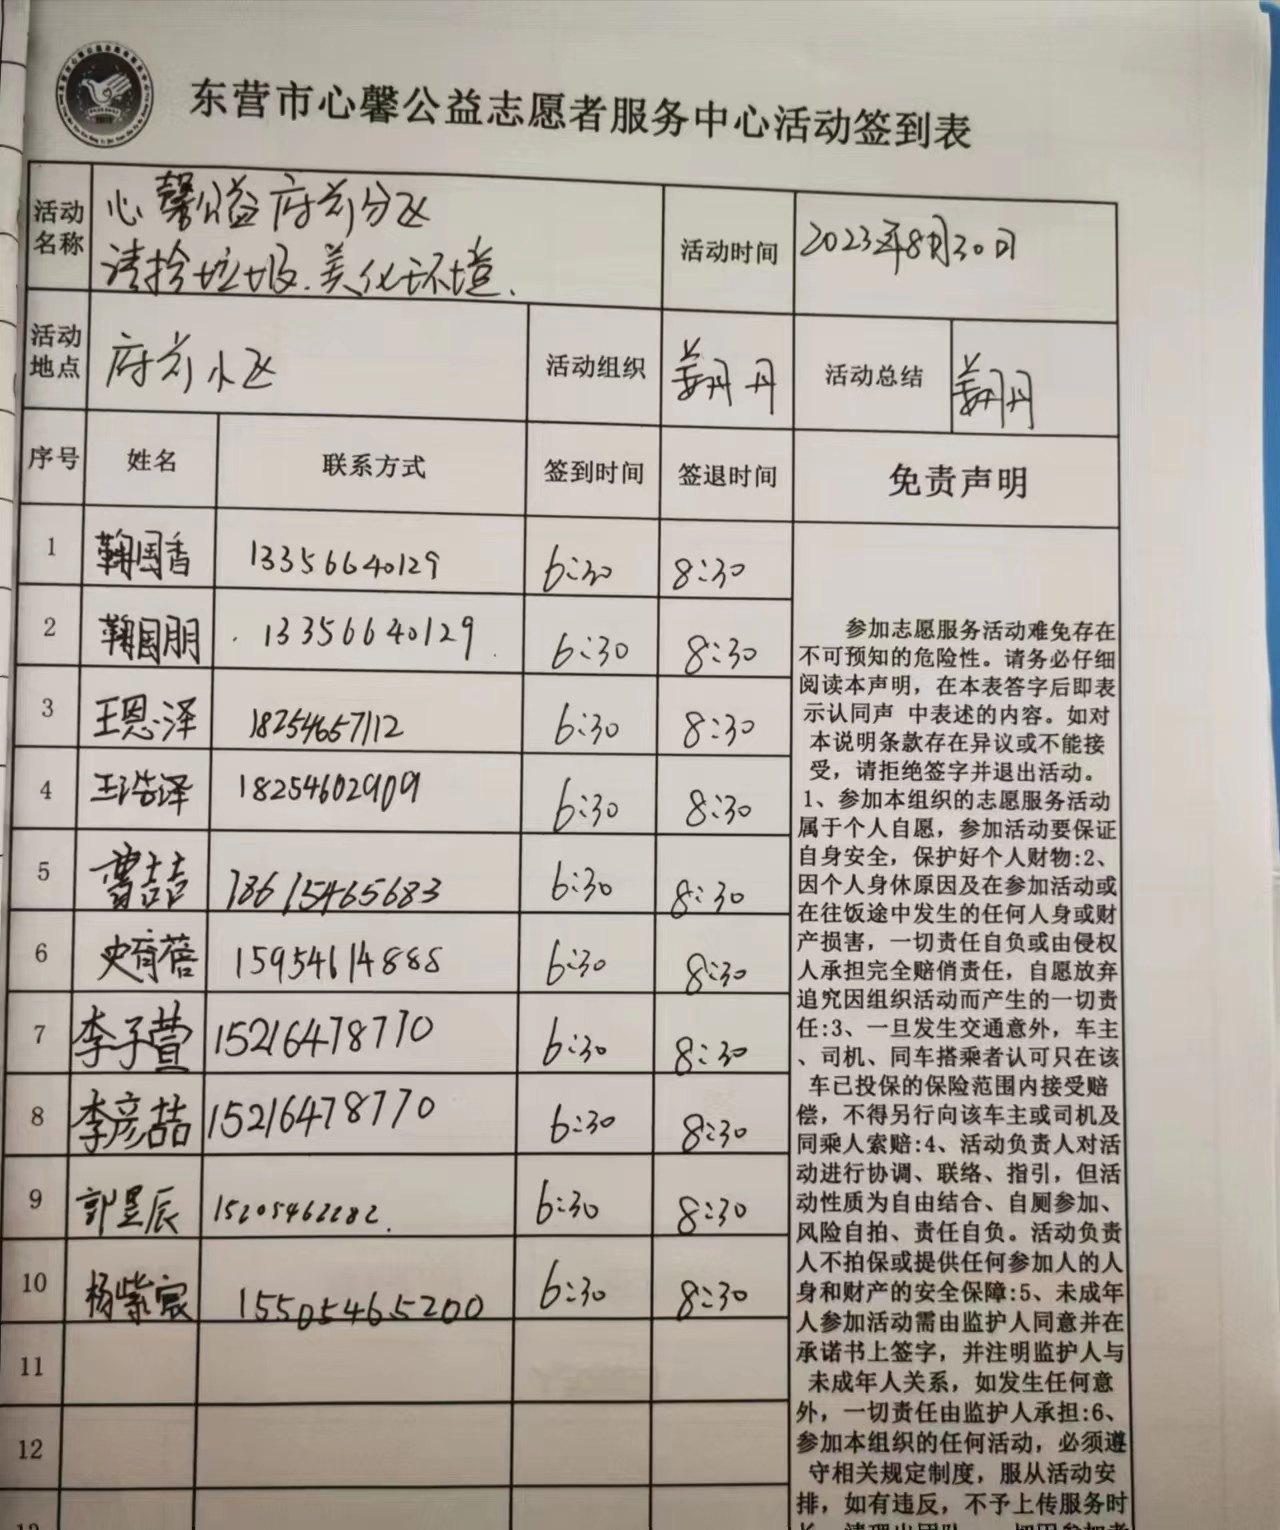 东营市心馨公益志愿者服务中心活动签到表
活动名称
心馨公益府前分区
清捡垃圾.美化环境.
活动时间
2023年8月30日
活动地点
府前小区
活动组织
姜丹丹
活动总结
姜丹丹
序号 姓名 联系方式 签到时间 签退时间 免责声明
1 鞠国香 13356640129 6:30 8:30
2 鞠国朋 13356640129 6:30 8:30
3 王恩泽 18254657112 6:30 8:30
4 王浩泽 18254602909 6:30 8:30
5 曹喆喆 18615465683 6:30 8:30
6 史育蓓 15954614888 6:30 8:30
7 李子萱 15216478770 6:30 8:30
8 李彦喆 15216478770 6:30 8:30
9 郭昱辰 15205462282. 6:30 8:30
10 杨紫宸 15505465200 6:30 8:30
11
12
参加志愿服务活动难免存在
不可预知的危险性。请务必仔细
阅读本声明，在本表答字后即表
示认同声 中表述的内容。如对
本说明条款存在异议或不能接
受，请拒绝签字并退出活动。
1、参加本组织的志愿服务活动
属于个人自愿，参加活动要保证
自身安全，保护好个人财物:2、
因个人身休原因及在参加活动或
在往饭途中发生的任何人身或财
产损害，一切责任自负或由侵权
人承担完全赔俏责任，自愿放弃
追究因组织活动而产生的一切责
任:3、一旦发生交通意外，车主
、司机、同车搭乘者认可只在该
车已投保的保险范围内接受赔
偿，不得另行向该车主或司机及
同乘人索赔:4、活动负责人对活
动进行协调、联络、指引，但活
动性质为自由结合、自厕参加、
风险自拍、责任自负。活动负责
人不拍保或提供任何参加人的人
身和财产的安全保障:5、未成年
人参加活动需由监护人同意并在
承诺书上签字，并注明监护人与
未成年人关系，如发生任何意
外，一切责任由监护人承担:6、
参加本组织的任何活动，必须遵
守相关规定制度，服从活动安
排，如有违反，不予上传服务时